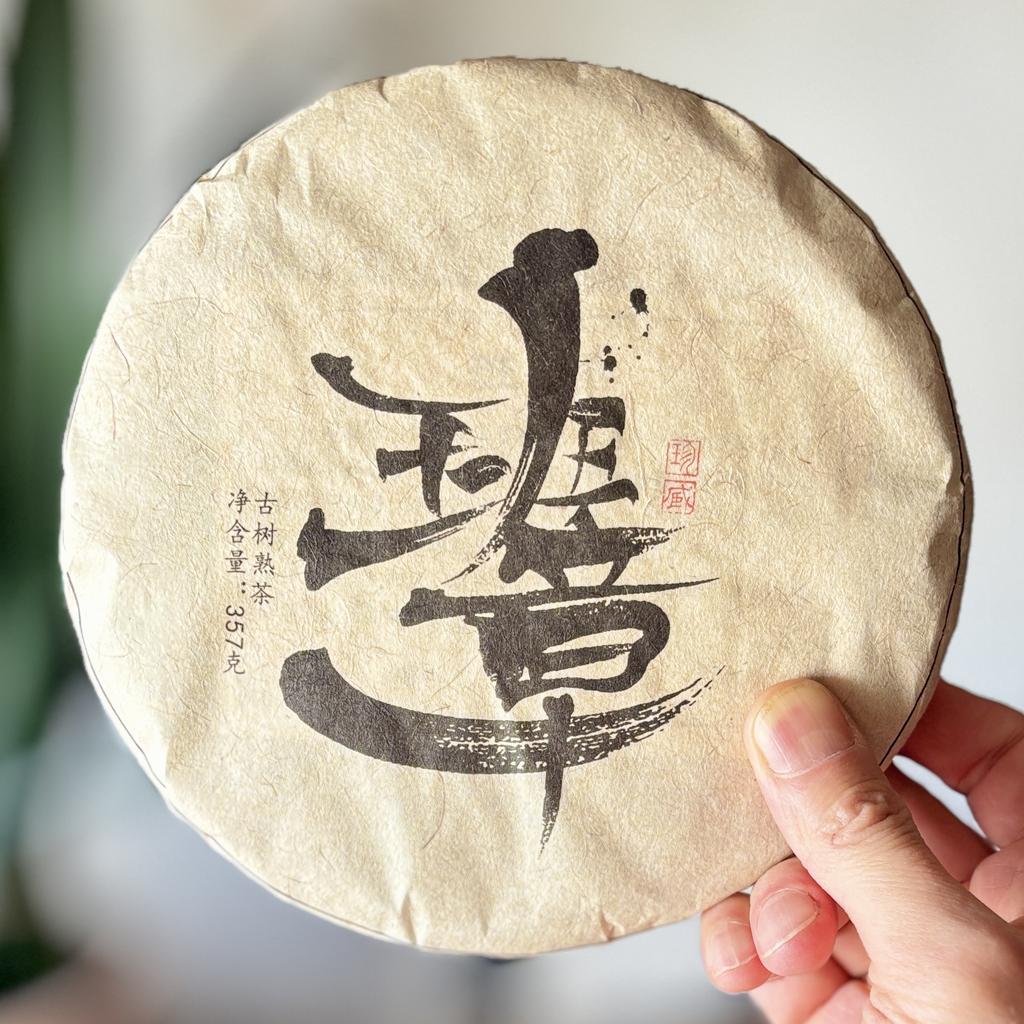 班章
珍藏
古树熟茶
净含量：357克